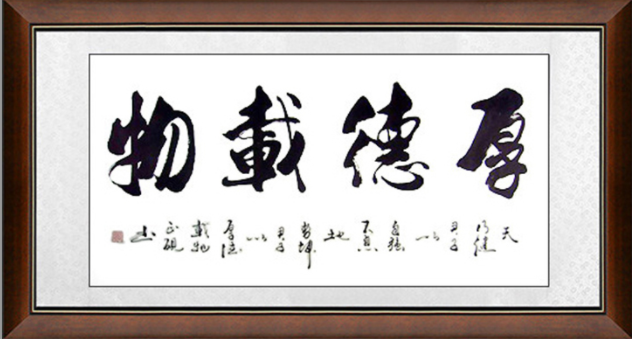 厚德載物
天
行健
君子
以
自強
不息
地
勢坤
君子
以
厚德
載物